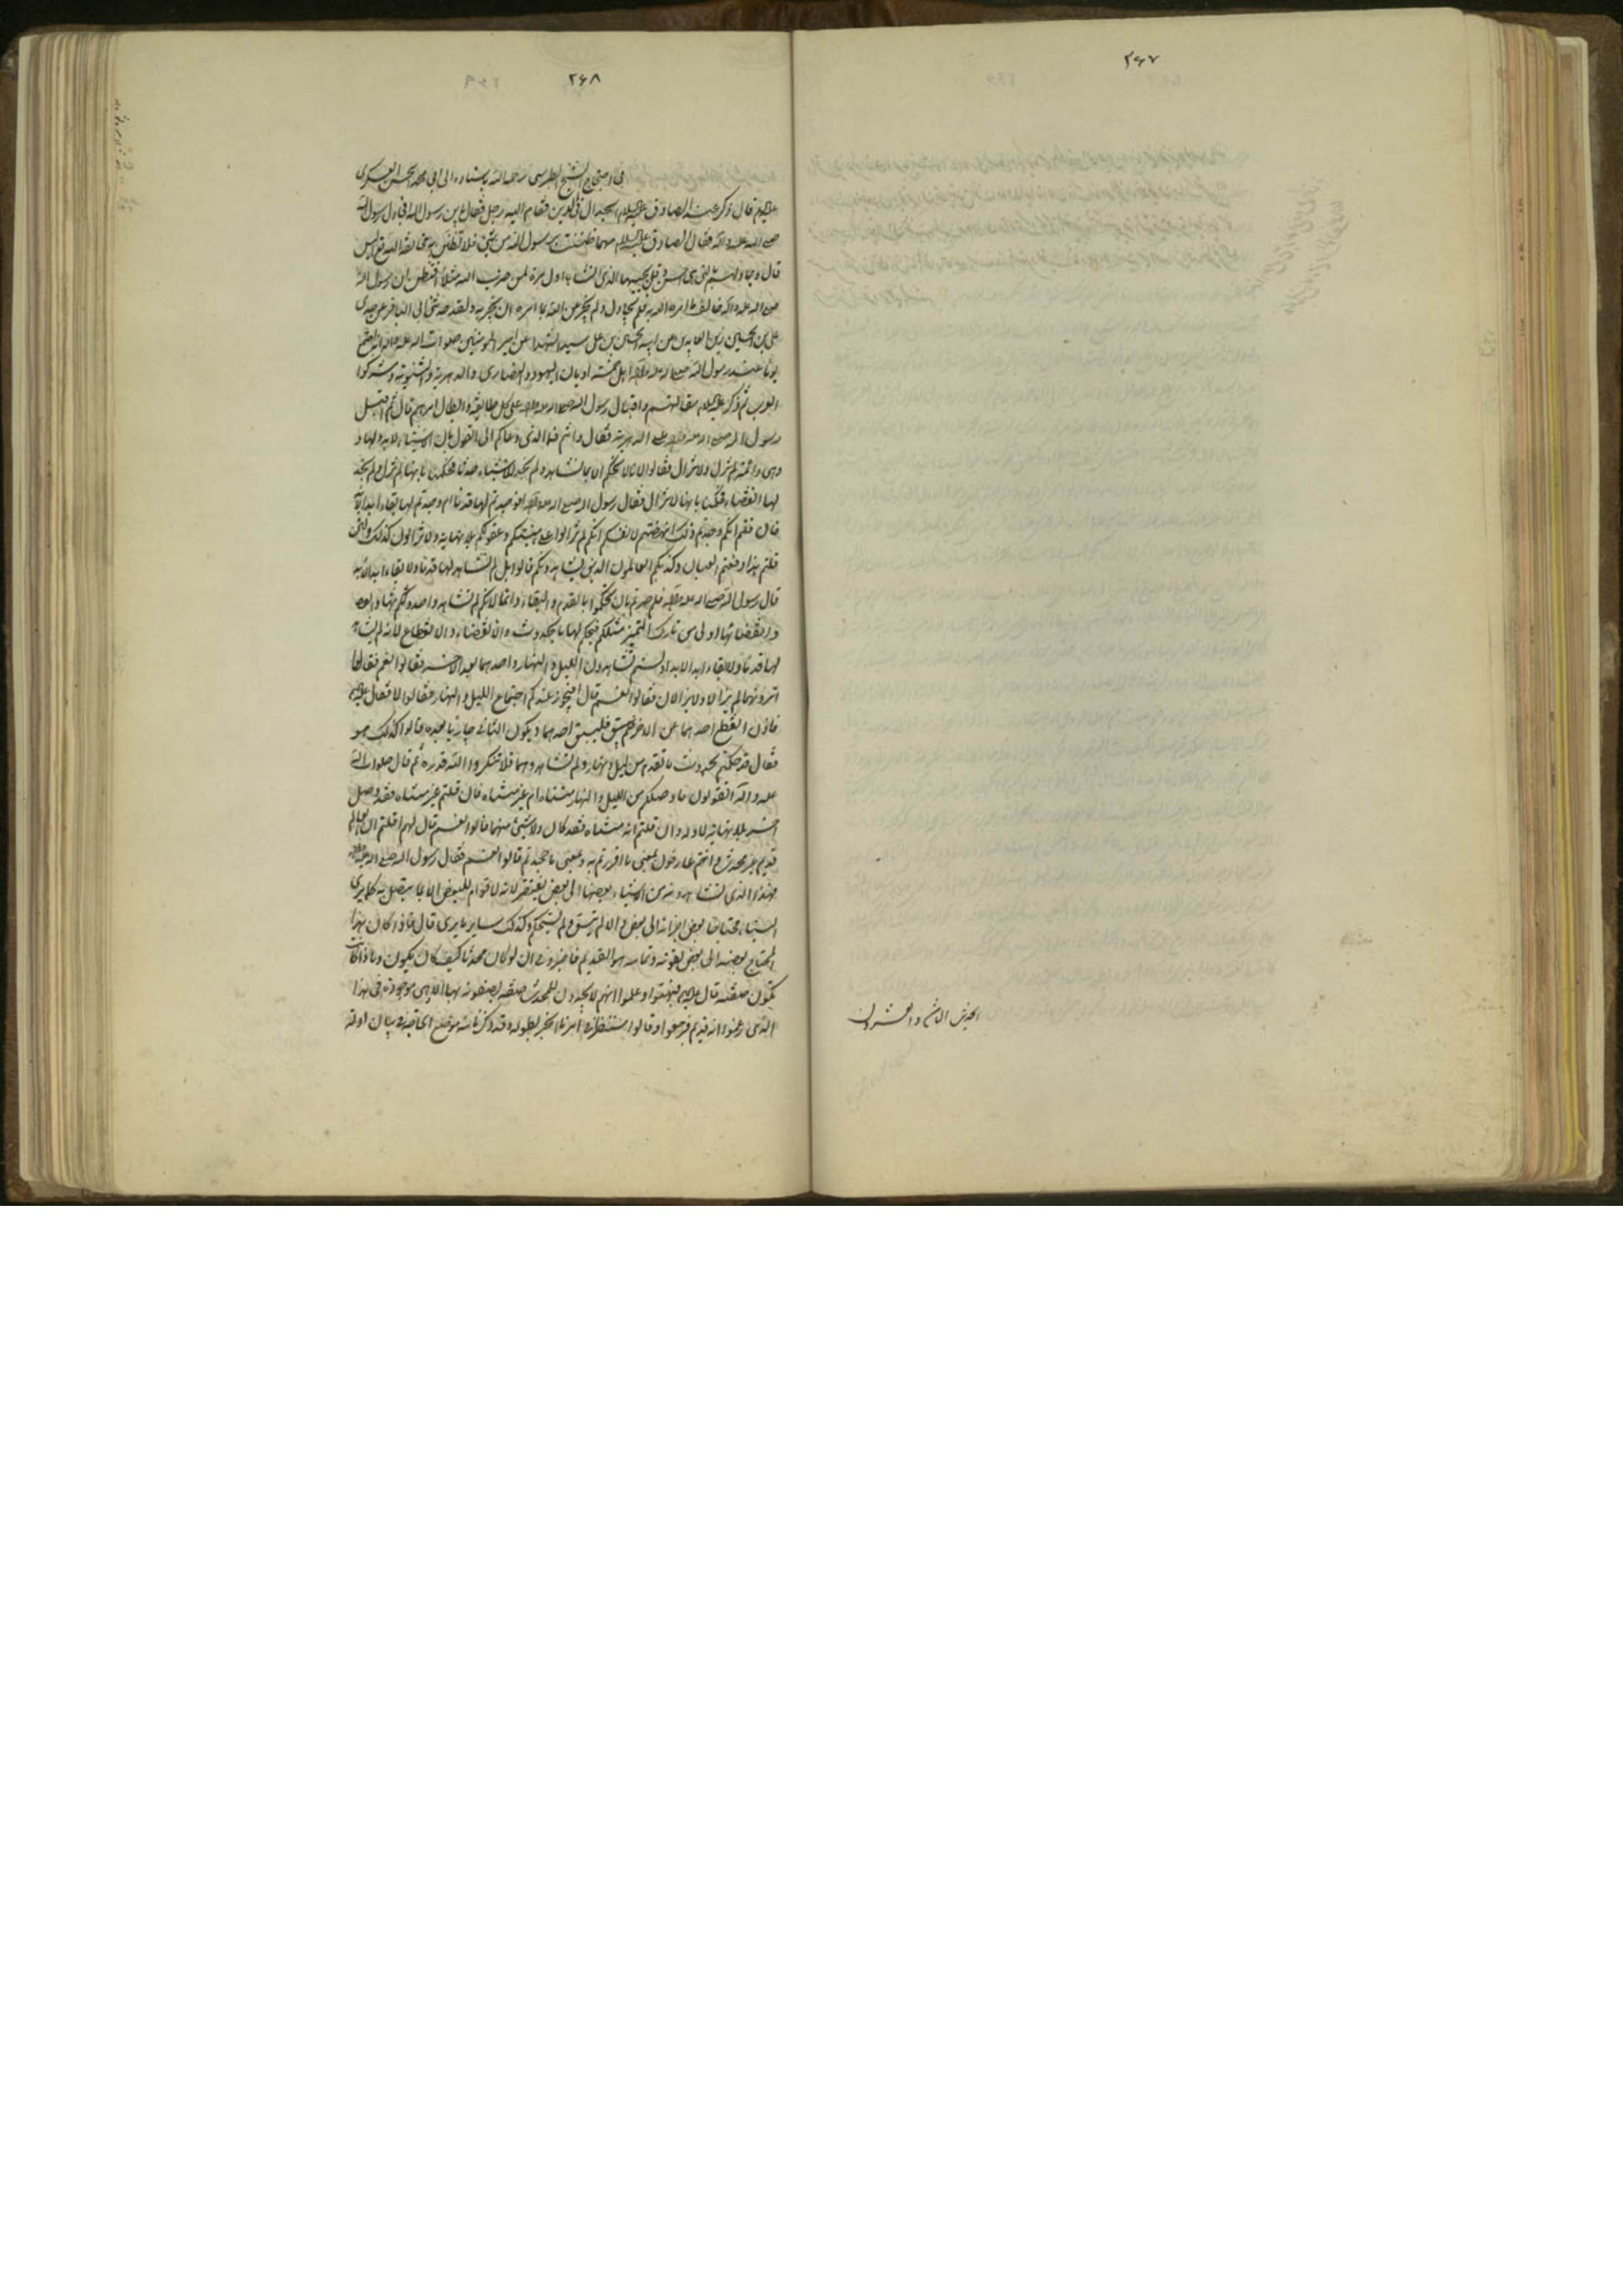 ۲۶۷
الحديث الثامن والعشرون
۲۶۸
في احتجاج الشيخ الطبرسي رحمه الله باسناده الى ابي محمد الحسن العسكري
عليه السلام قال ذكر عند الصادق عليه السلام الجدال في الدين فقام اليه رجل فقال يا بن رسول الله افجادل رسول الله
صلى الله عليه وآله فقال الصادق عليه السلام مهما ظننت برسول الله من شيئ فلا تظنن به مخالفة الله تعالى اليس
قال وجادلهم بالتي هي احسن وقل يحييها الذي انشأها اول مرة لمن ضرب الله مثلا افتظن ان رسول الله
صلى الله عليه وآله خالف ما امره الله به فلم يجادل ولم يخبر عن الله بما امره ان يخبر به ولقد حدثني ابي الباقر عن جدي
علي بن الحسين زين العابدين عن ابيه الحسين بن علي سيد الشهداء عن امير المؤمنين صلوات الله عليه وآله انه اجتمع
يوما عند رسول الله صلى الله عليه وآله اهل خمسة اديان اليهود والنصارى والدهرية والثنوية ومشركوا
العرب ثم ذكر عليه السلام مقالتهم واقبال رسول الله صلى الله عليه وآله على كل طائفة وابطال امرهم قال ثم اقبل
رسول الله صلى الله عليه وآله على الدهرية فقال وانتم فما الذي دعاكم الى القول بان الاشياء لا بدو لها و
وهي دائمة لم تزل ولا تزال فقالوا لانا لا نحكم الا بما نشاهد ولم نجد للاشياء حدثا فحكمنا بانها لم تزل ولم نجد
لها انقضاء فحكمنا بانها لا تزال فقال رسول الله صلى الله عليه وآله افوجدتم لها قدما ام وجدتم لها بقاء ابد الآبد
فان قلتم انكم وجدتم ذلك انهضتم لانفسكم انكم لم تزالوا على هيئتكم وعقولكم بلا نهاية ولا تزالون كذلك ولئن
قلتم هذا دفعتم العيان وكذبكم العالمون الذين يشاهدونكم قالوا بل لم نشاهد لها قدما ولا بقاء ابد الابد
قال رسول الله صلى الله عليه وآله فلم صرتم بان تحكموا بالقدم والبقاء دائما لانكم لم تشاهدوا حدوثها
وانقضائها اولى من تارك التميز مثلكم فيحكم لها بالحدوث والانقضاء والانقطاع لانه لم يشاهد
لها قدما ولا بقاء ابد الابد اولستم تشاهدون الليل والنهار واحدهما بعد الاخر فقالوا نعم فقال
اترونهما لم يزالا ولا يزالان فقالوا نعم قال افيجوز عندكم اجتماع الليل والنهار فقالوا لا فقال عليه السلام
فاذن انقطع احدهما عن الاخر فيسبق احدهما ويكون الثاني جاريا بعده قالوا كذلك هو
فقال قد حكمتم بحدوث ما تقدم من ليل ونهار ولم تشاهدوهما فلا تنكروا لله قدرة ثم قال صلوات الله
عليه وآله اتقولون ما قبلكم من الليل والنهار متناه ام غير متناه فان قلتم غير متناه فقد وصل
اخر بلا نهاية لاوله وان قلتم انه متناه فقد كان ولا شيئ منهما قالوا نعم قال لهم اقلتم ان العالم
قديم غير محدث وانتم عارفون بمعنى ما اقررتم به وبمعنى ما جحدتم قالوا نعم فقال رسول الله صلى الله عليه وآله
فهذا الذي نشاهده من الاشياء بعضها الى بعض يفتقر لانه لا قوام للبعض الا بما يتصل به كما نرى
البناء محتاجا بعض اجزائه الى بعض والا لم يتسق ولم يستحكم وكذلك ساير ما يرى قال فاذا كان هذا
المحتاج بعضه الى بعض لقوته وتمامه هو القديم فاخبروني ان لو كان محدثا كيف كان يكون وماذا كانت
تكون صفته قال عليه السلام فبهتوا وعلموا انهم لا يجدون للمحدث صفة يصفونه بها الا وهي موجودة في هذا
الذي زعموا انه قديم فوجموا وقالوا سننظر في امرنا الخبر بطوله وقد ذكرنا منه موضع الحاجة